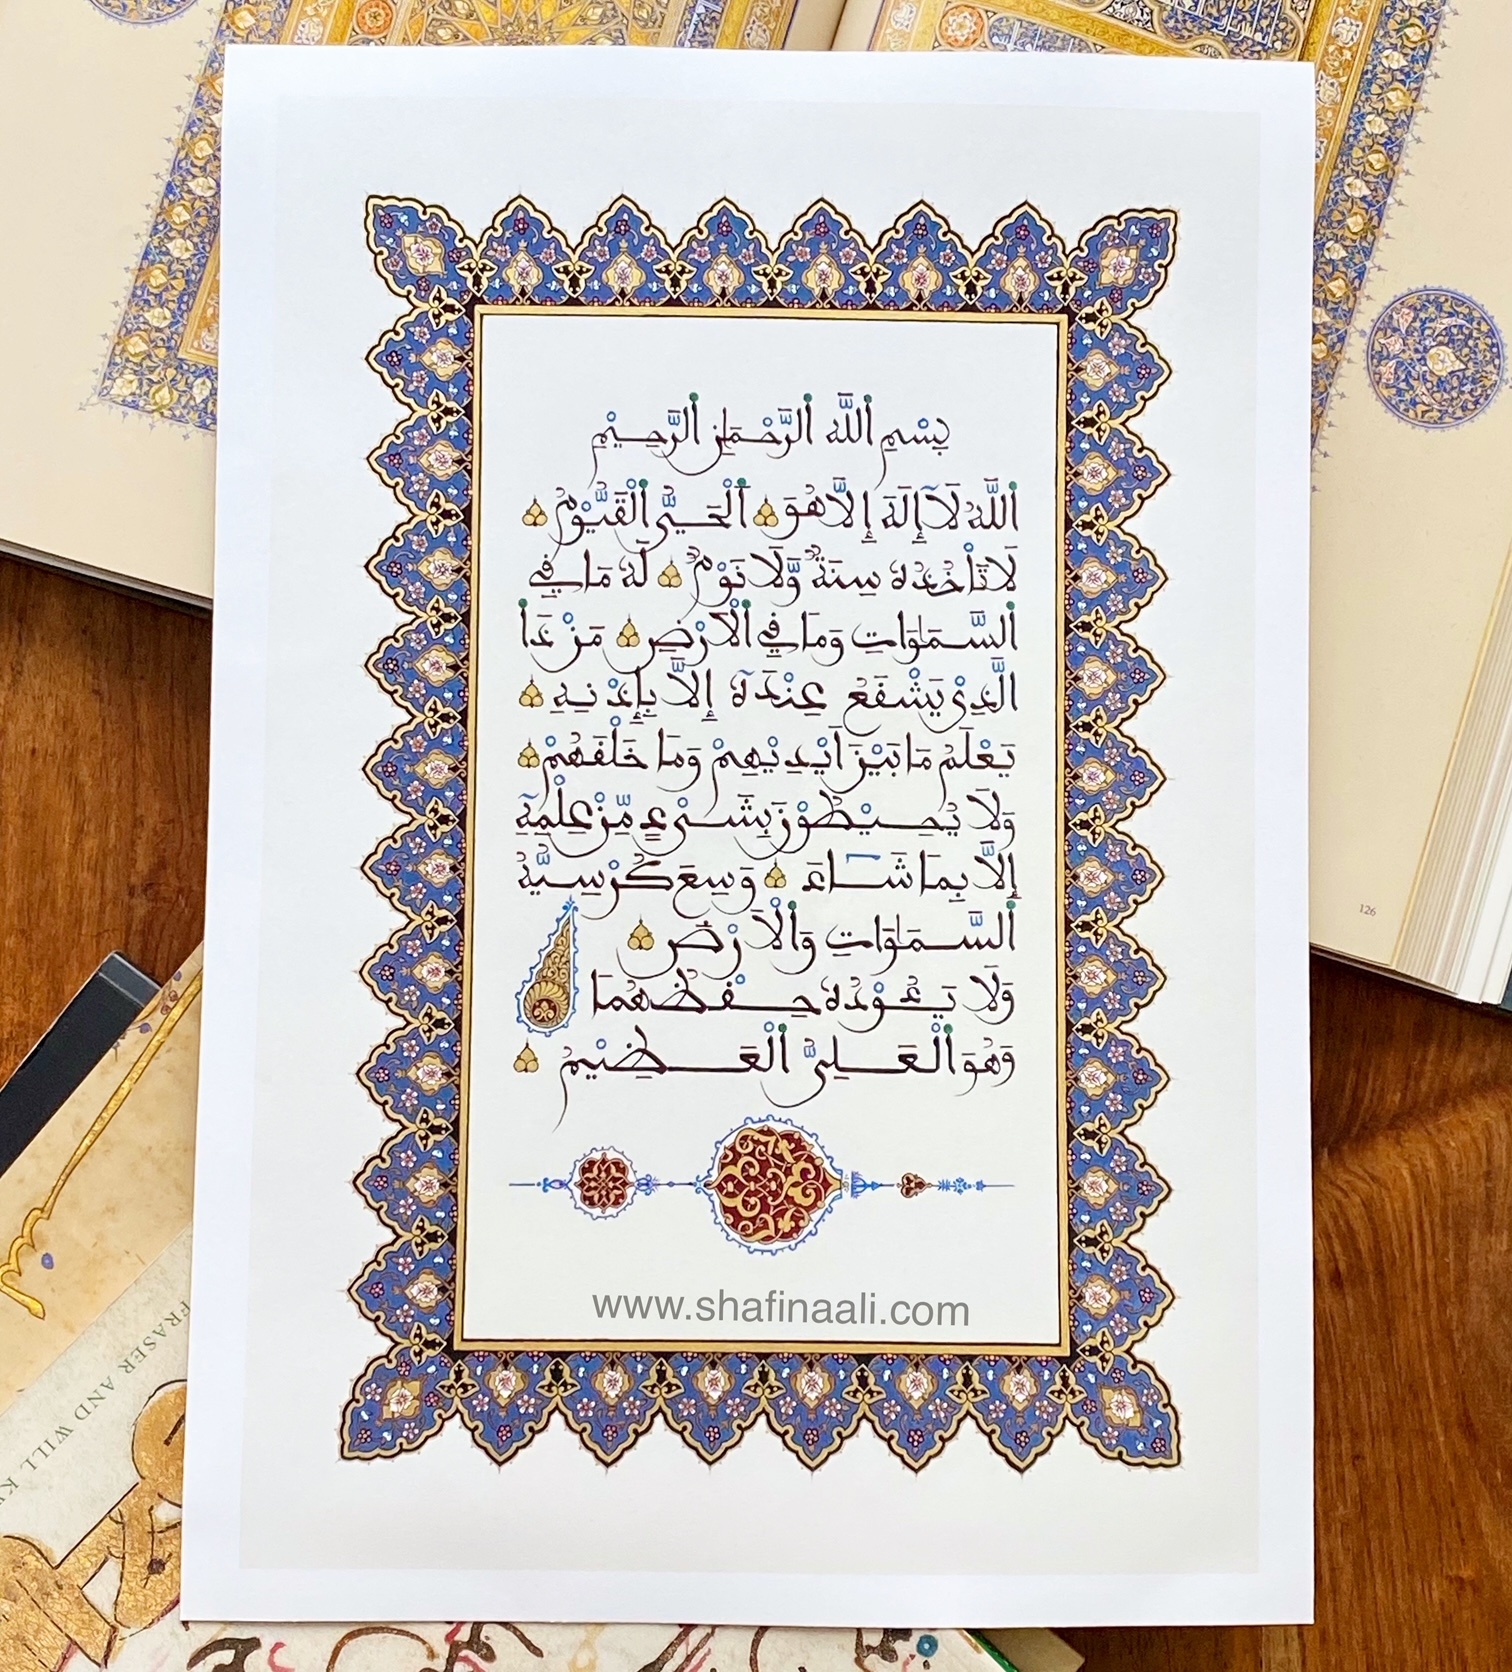 بِسْمِ ٱللَّهِ ٱلرَّحْمَٰنِ ٱلرَّحِيمِ
ٱللَّهُ لَآ إِلَٰهَ إِلَّا هُوَ ٱلْحَىُّ ٱلْقَيُّومُ
لَا تَأْخُذُهُۥ سِنَةٌ وَّلَا نَوْمٌ لَهُۥ مَا فِى
ٱلسَّمَٰوَاتِ وَمَا فِى ٱلْأَرْضِ مَنْ ذَا
ٱلَّذِى يَشْفَعُ عِنْدَهُۥٓ إِلَّا بِإِذْنِهِ
يَعْلَمُ مَا بَيْنَ أَيْدِيْهِمْ وَمَا خَلْفَهُمْ
وَلَا يُحِيْطُوْنَ بِشَىْءٍ مِّنْ عِلْمِهِٓ
إِلَّا بِمَا شَآءَ وَسِعَ كُرْسِيُّهُ
ٱلسَّمَٰوَاتِ وَٱلْأَرْضَ
وَلَا يَـُٔوْدُهُۥ حِفْظُهُمَا
وَهُوَ ٱلْعَلِىُّ ٱلْعَظِيْمُ
www.shafinaali.com
126
FRASER AND WILL